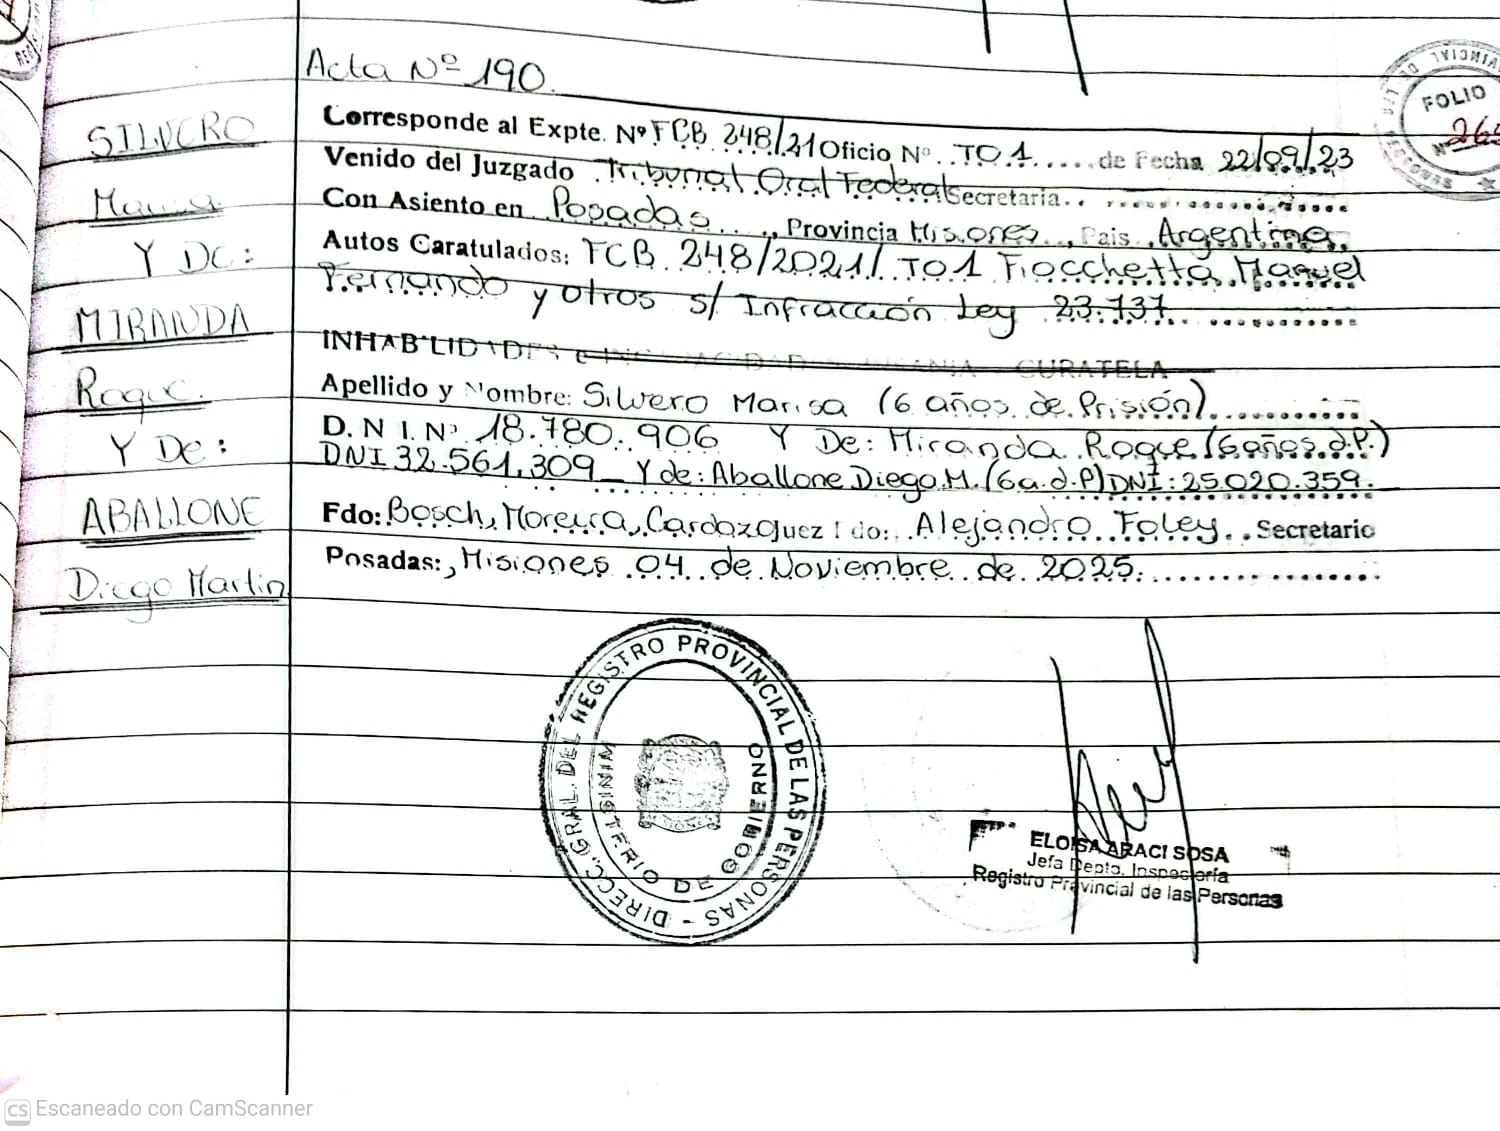 Acta Nº 190.
SILVERO
Marisa
Y De:
MIRANDA
Roque.
Y De:
ABALLONE
Diego Martin
Corresponde al Expte. Nº FCB 248/21 Oficio Nº. TO1..... de Fecha 22/09/23
Venido del Juzgado .Tribunal Oral Federal Secretaria..
Con Asiento en Posadas..., Provincia Misiones.., Pais .Argentina.
Autos Caratulados: FCB 248/2021/ TO1 Fiocchetta Manuel
Fernando y otros s/ Infracción Ley 23.737.
INHABILIDADES e CURATELA
Apellido y Nombre: Silvero Marisa (6 años de Prisión).
D.N I.Nº 18.780.906 Y De: Miranda Roque (6años.d.P.)
DNI 32.561.309 _ Y de: Aballone Diego M. (6a.d.P) DNI: 25.020.359.
Fdo: Bosch, Moreira, Cardozo Juez Fdo:. Alejandro Foley.. Secretario
Posadas:, Misiones 04 de Noviembre de 2025.
FOLIO
Nº 26
DIRECC. GRAL. DEL REGISTRO PROVINCIAL DE LAS PERSONAS -
MINISTERIO DE GOBIERNO
ELOISA ARACI SOSA
Jefa Depto. Inspectoría
Registro Provincial de las Personas
CS Escaneado con CamScanner